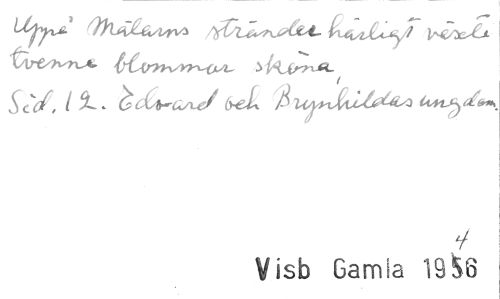 Uppå Mälarns stränder härligt växte
tvenne blommor sköna,
Sid. 12. Edvard och Brynhildas ungdom.
4
Visb Gamla 1956